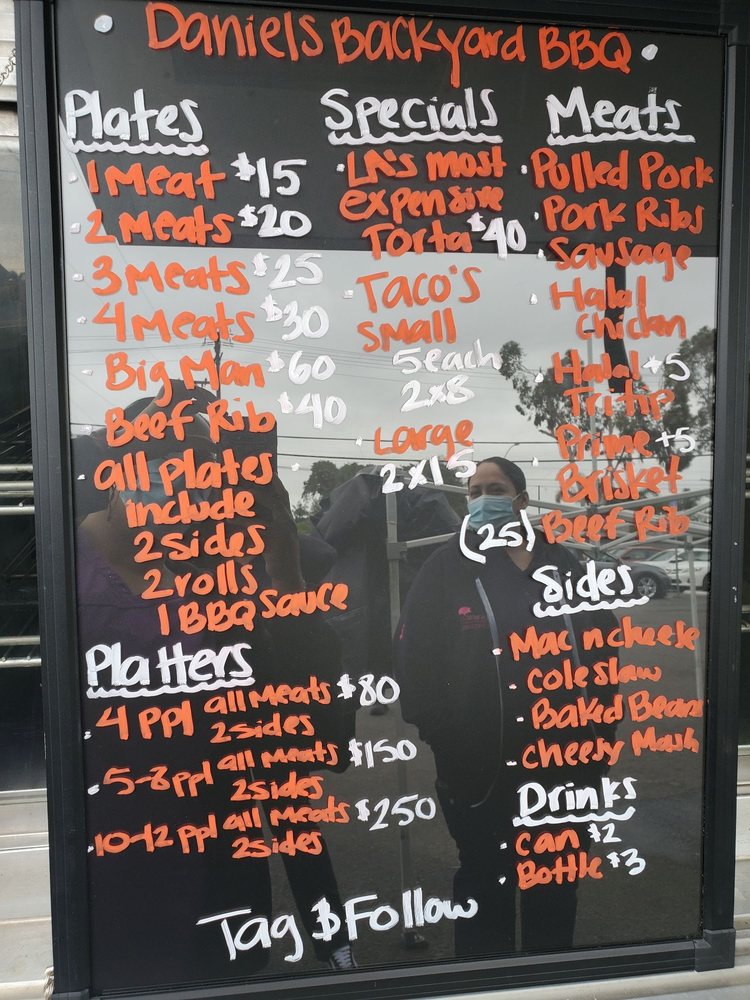 Daniels Backyard BBQ
Plates
1 Meat $15
2 Meats $20
3 Meats $25
4 Meats $30
Big Man $60
Beef Rib $40
all plates
include
2 sides
2 rolls
1 BBQ Sauce
Platters
4 ppl all Meats $80
2 sides
5-8 ppl all meats $150
2 sides
10-12 ppl all Meats $250
2 sides
Specials
LA's most
expensive
Torta $40
Taco's
small
5 each
2x8
Large
2x15
Meats
Pulled Pork
Pork Ribs
Sausage
Halal
chicken
Halal +5
Tritip
Prime +5
Brisket
(25) Beef Rib
Sides
Mac n cheese
cole slaw
Baked Beans
cheesy Mash
Drinks
can $2
Bottle $3
Tag $ Follow